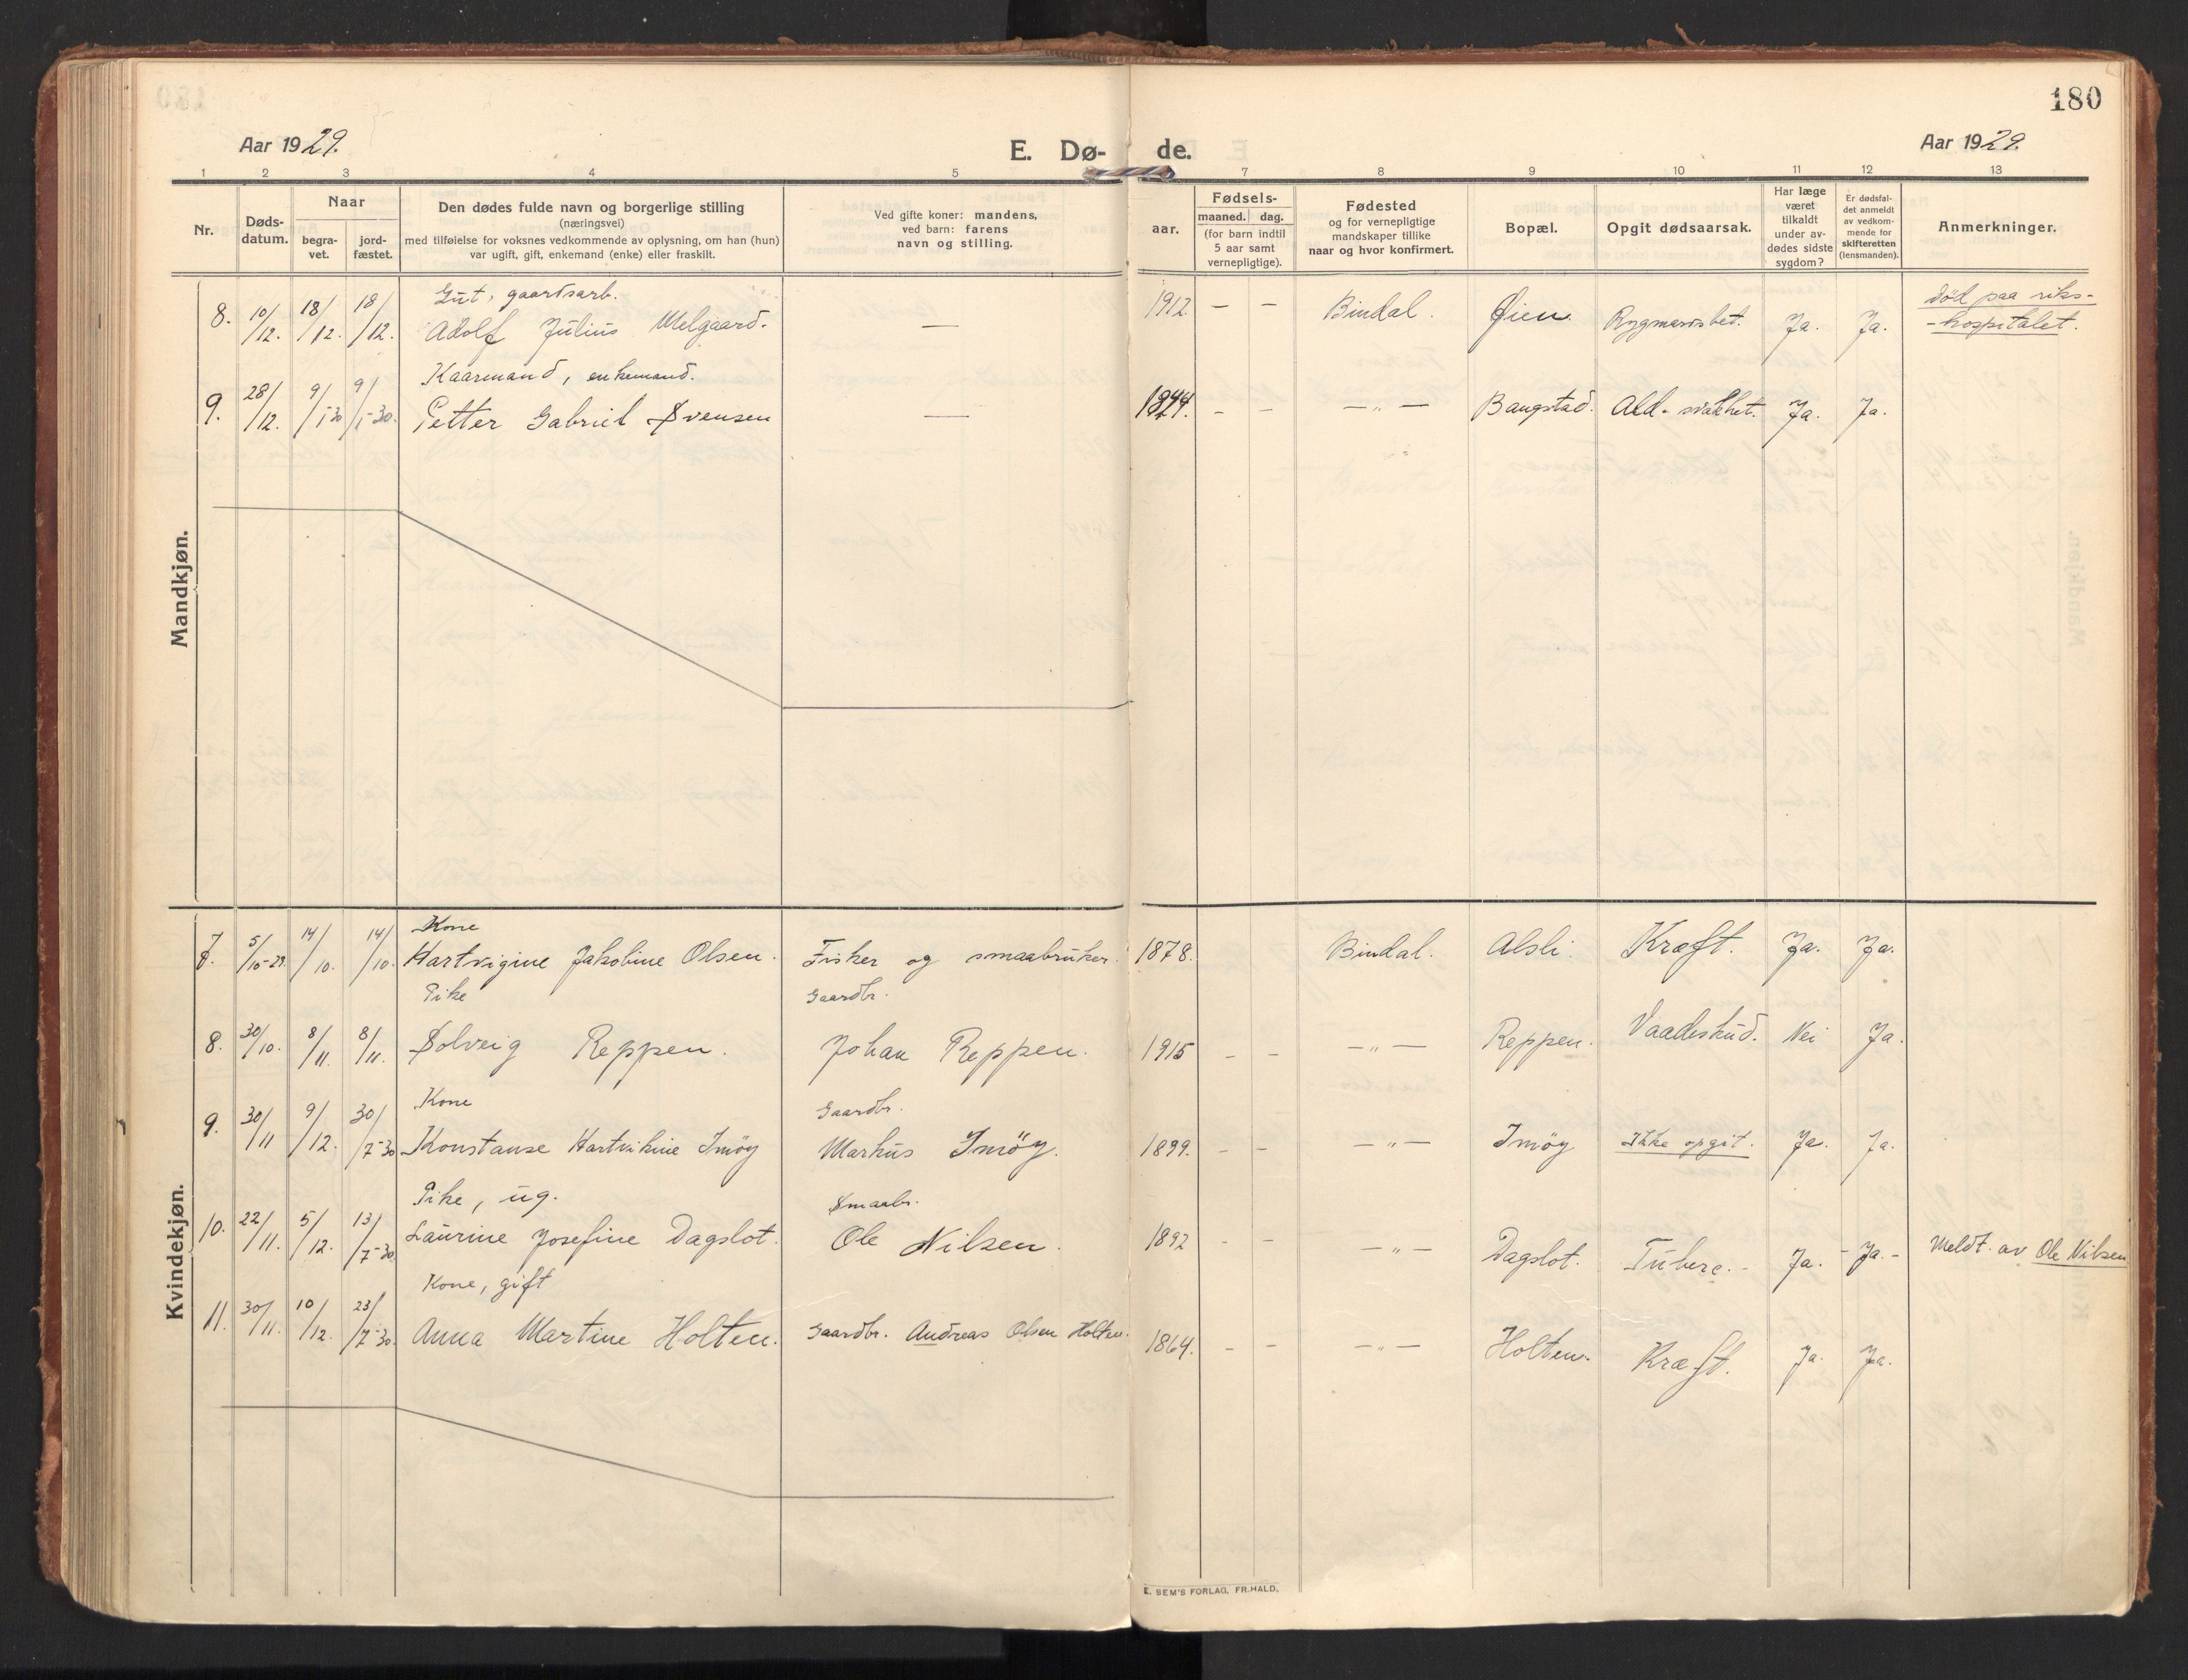 180
Aar 1929.
E. Dø- de.
Aar 1929.
1 2 3 4 5 7 8 9 10 11 12 13
Nr.
Døds-
datum.
Naar
begra-
vet.
jord-
fæstet.
Den dødes fulde navn og borgerlige stilling
(næringsvei)
med tilføielse for voksnes vedkommende av oplysning, om han (hun)
var ugift, gift, enkemand (enke) eller fraskilt.
Ved gifte koner: mandens,
ved barn: farens
navn og stilling.
aar.
Fødsels-
maaned. dag.
(for barn indtil
5 aar samt
vernepligtige).
Fødested
og for vernepligtige
mandskaper tillike
naar og hvor konfirmert.
Bopæl.
Opgit dødsaarsak.
Har læge
været
tilkaldt
under av-
dødes sidste
sygdom?
Er dødsfal-
det anmeldt
av vedkom-
mende for
skifteretten
(lensmanden).
Anmerkninger.
Mandkjøn.
Gut, gaardsarb.
8. 10/12. 18/12. 18/12. Adolf Julius Melgaard. — 1912 — — Bindal. Øien Rygmarvsbet. Ja. Ja. Död paa riks-
-hospitalet.
Kaarmand, enkemand.
9. 28/12. 9/1-30 9/1-30. Petter Gabriel Svensen — 1844. - - —„— Bangstad. Ald-svakhet. Ja. Ja.
Kvindekjøn.
Kone
7. 5/10-29. 14/10. 14/10. Hartvigine Jakobine Olsen. Fisker og smaabruker. 1878. Bindal. Alsli. Kræft. Ja. Ja.
Pike Gaardbr.
8. 30/10. 8/11. 8/11. Solveig Reppen. Johan Reppen. 1915 - - —„— Reppen. Vaadeskud. Nei Ja.
Kone Gaardbr.
9. 30/11 9/12. 30/7-30 Konstanse Hartvikine Imöy Markus Imöy. 1899. - - —„— Imöy Ikke opgit. Ja. Ja.
Pike, ug. Smaabr.
10. 22/11. 5/12. 13/7-30 Laurine Josefine Dagslot. Ole Nilsen. 1892 - - —„— Dagslot. Tuberc.- Ja.- Ja.- Meldt av Ole Nilsen
Kone, gift
11. 30/11. 10/12. 23/7-30. Anna Martine Holten. Gaardbr. Andreas Olsen Holten. 1864. - - —„— Holten. Kræft. Ja. Ja.
E. SEM'S FORLAG, FR.HALD.